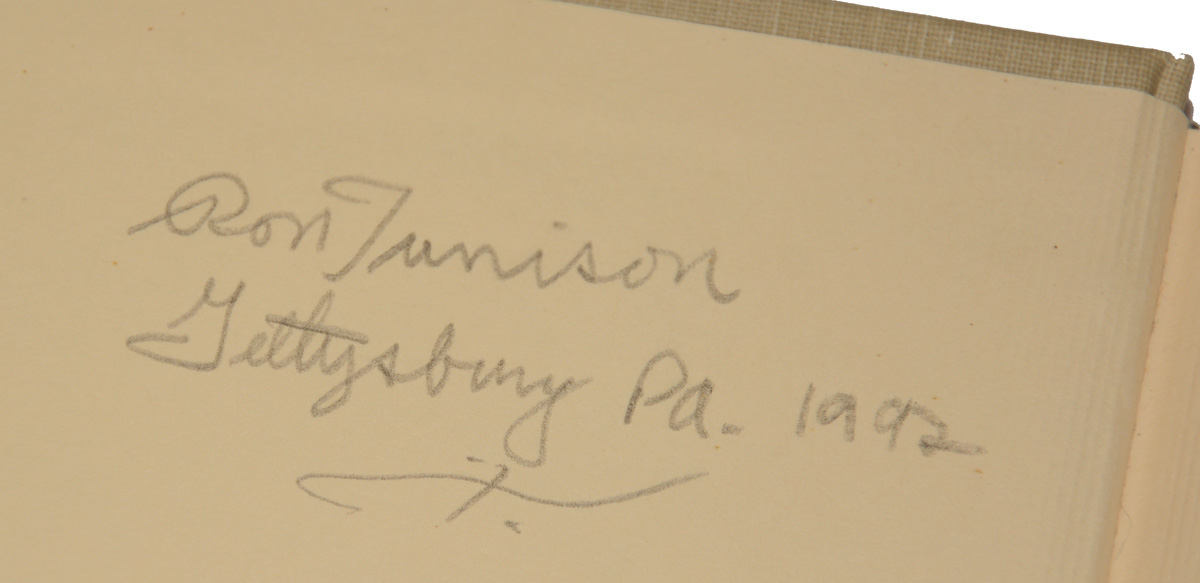 Ron Tunison
Gettysburg Pa. 1992